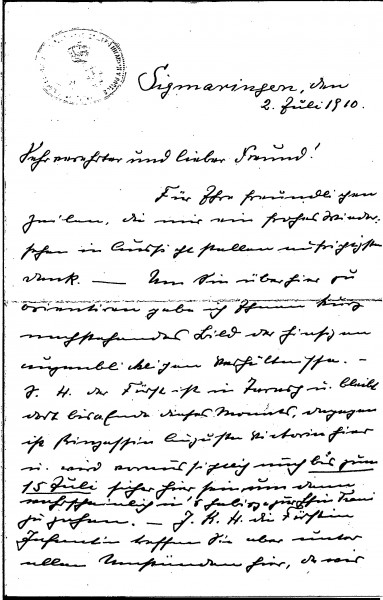 Sigmaringen, den
2. Juli 1910.
Sehr verehrter und lieber Freund!
Für Ihre freundlichen
Zeilen, die mir ein frohes Wieder-
sehen in Aussicht stellen aufrichtigsten
Dank. — Um Sie über hier zu
orientiren gebe ich Ihnen kurz
nachstehendes Bild der hiesigen
augenblicklichen Verhältnisse. –
S. H. der Fürst ist in u. bleibt
dort bis Ende dieses Monats, dagegen
ist Prinzessin Auguste Victoria hier
u. wird voraussichtlich noch bis zum
15 Juli sicher hier sein um dann
wahrscheinlich in's
zu gehen. — J. K. H. die Fürstin
Infantin treffen Sie aber unter
allen Umständen hier, da wir